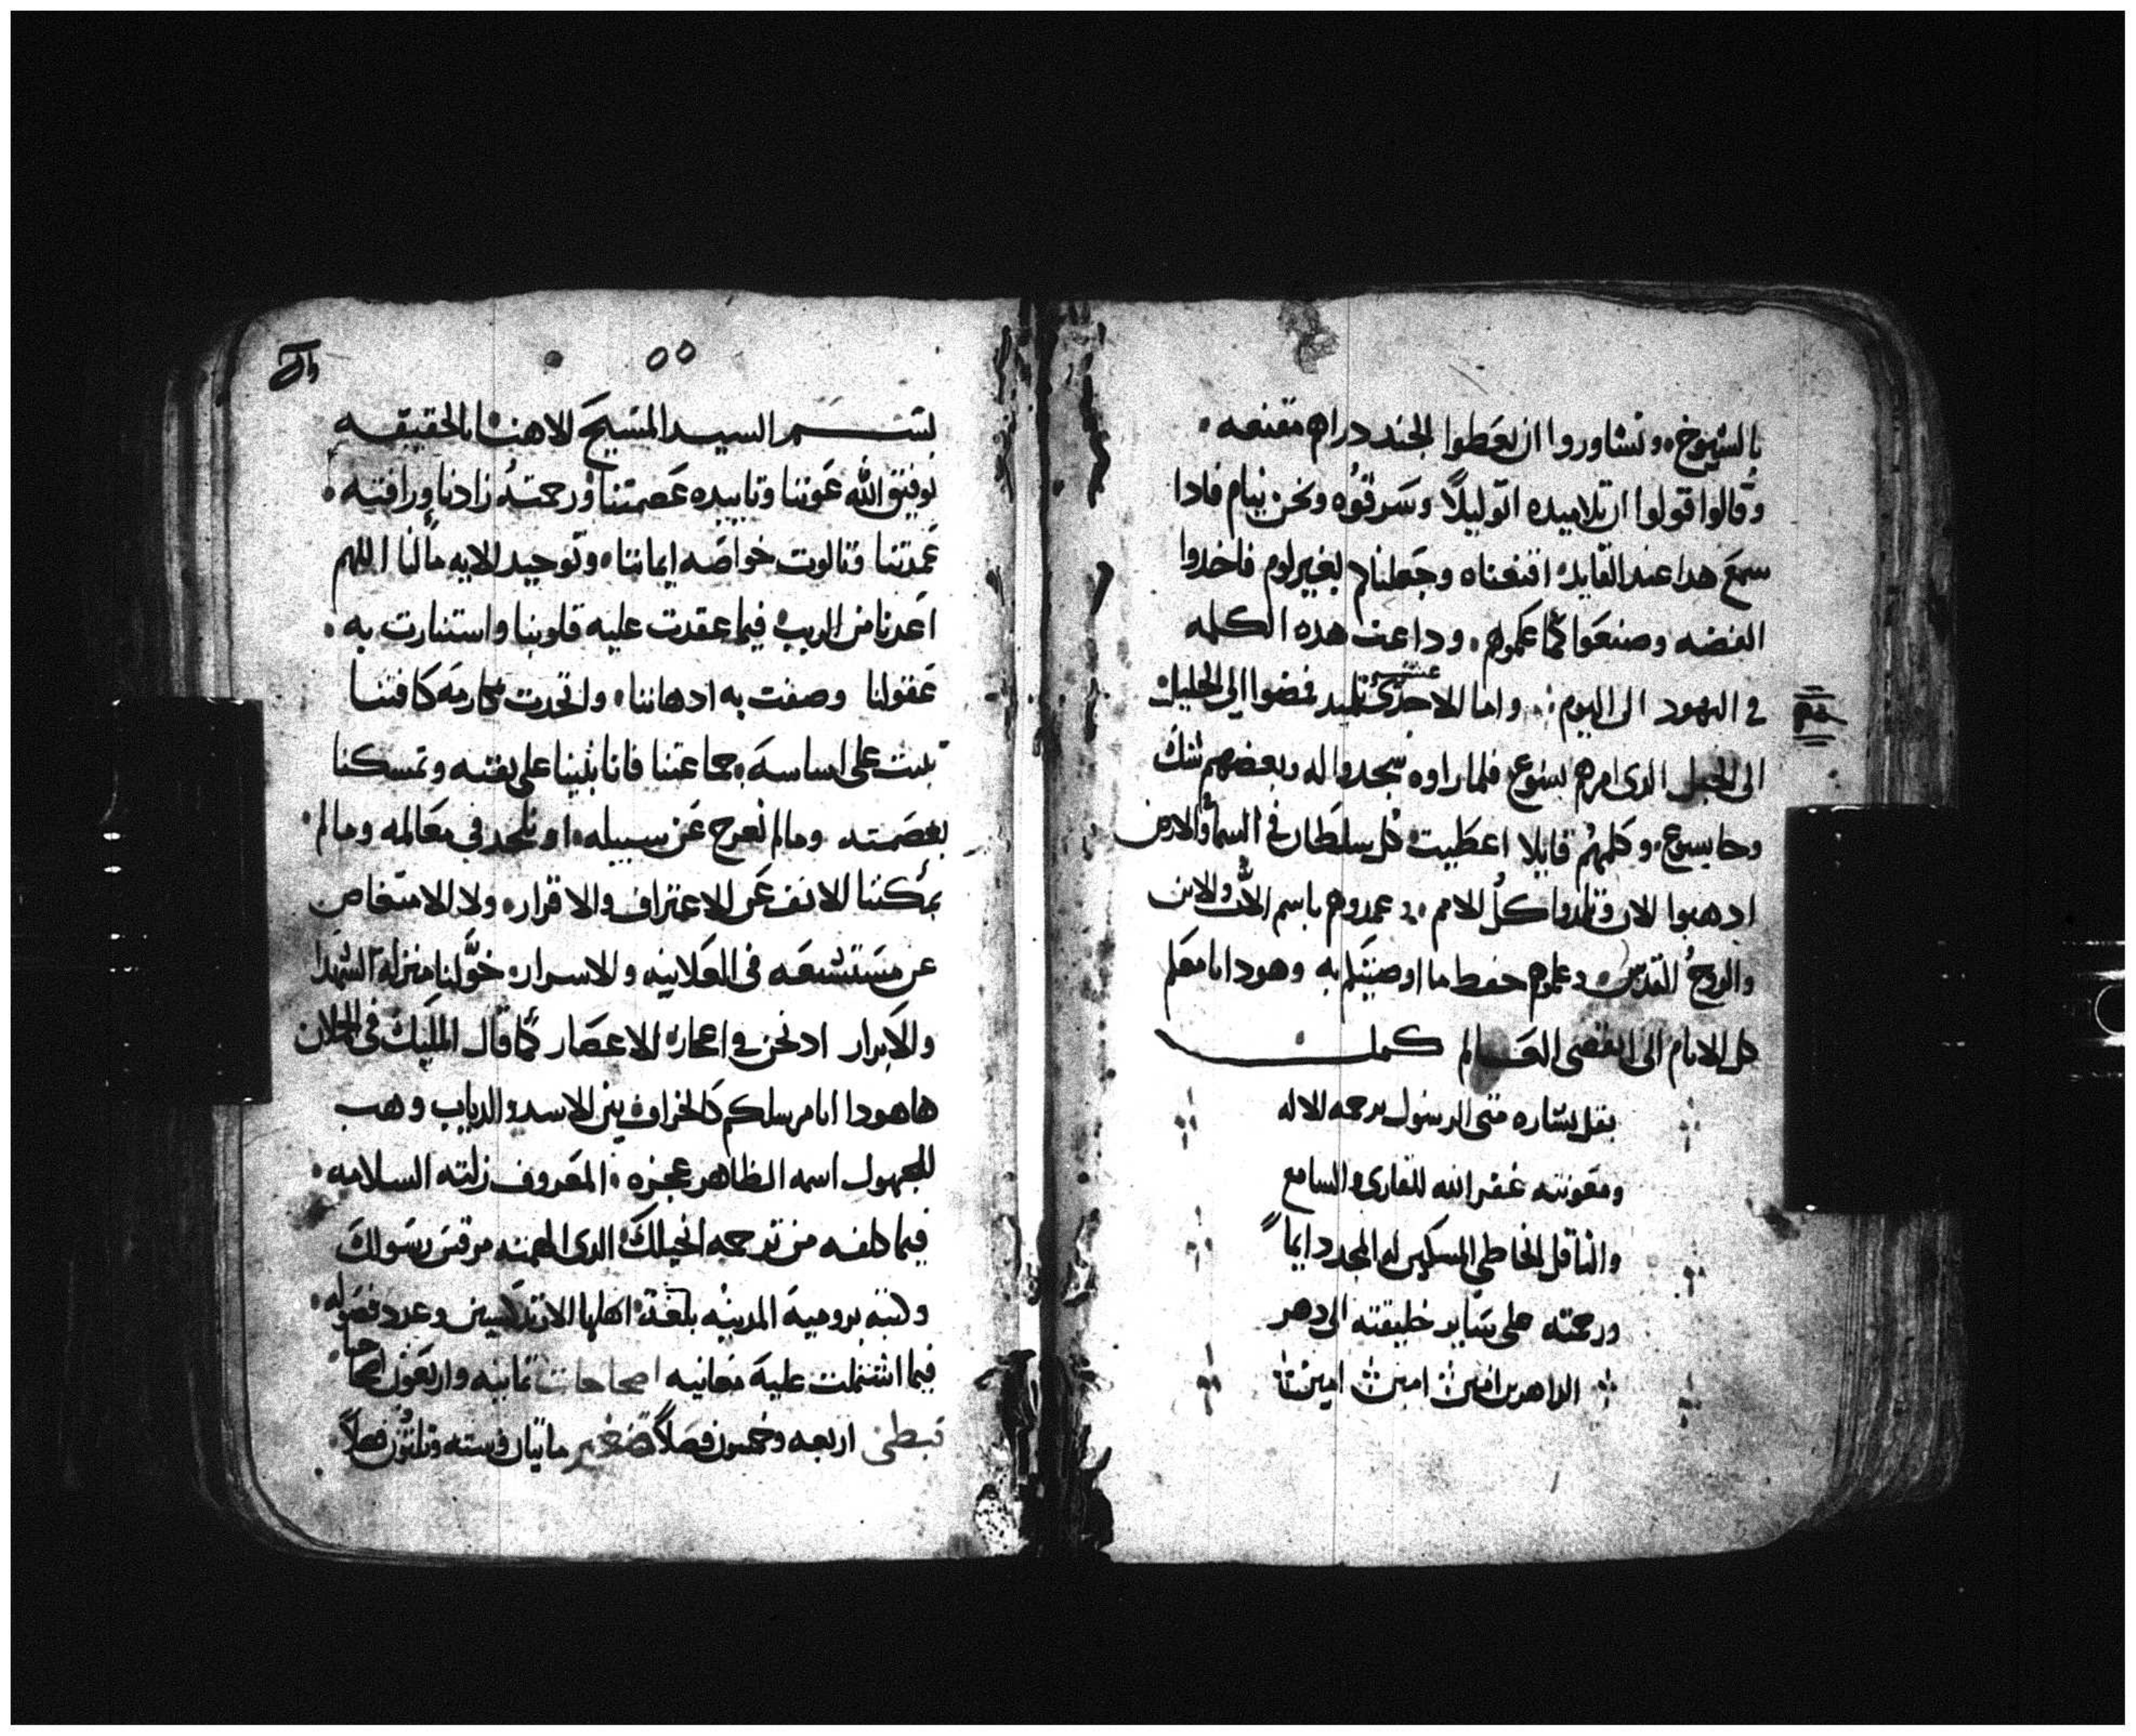 بالشيوخ وتشاوروا ان يعطوا الجند دراهم مقنعه
وقالوا قولوا ان تلاميده اتو ليلاً وسرقوه ونحن نيام فادا
سمع هدا عند القايد اقنعناه وجعلناكم بغير لوم فاخدوا
الفضه وصنعوا كما علموهم وداعت هده الكلمه
في اليهود الى اليوم واما الاحدى عشر تلميد فمضوا الي الجليل
الى الجبل الدى امرهم يسوع فلما راوه سجدوا له وبعضهم شك
وجا يسوع وكلمهم قايلا اعطيت كل سلطان في السما والارض
ادهبوا الان وتلمدوا كل الامم وعمدوهم باسم الاب والابن
والروح القدس وعلموهم حفظ ما اوصيتكم به وهودا انا معكم
كل الايام الى انقضى العالم كملت
نقل بشاره متى الرسول برحمه الاله
ومعونته غفر الله للقارى والسامع
والناقل الخاطي المسكين له المجد دايما
ورحمته على ساير خليقته الى دهر
الداهرين امين امين امين
٥٥
بسم السيد المسيح الاهنا بالحقيقه
توفيق الله عوننا وتاييده عصمتنا ورحمته زادنا ورافته
عمدتنا وتالوت خواصه ايماننا وتوحيد الايه مالنا اللهم
اعدنا من الريب فيما عقدت عليه قلوبنا واستنارت به
عقولنا وصفت به ادهاننا واتحدت مكارمه كافتنا
تبت على اساسه جماعتنا فانا بثينا على بقته وتمسكنا
بعصمته ومالم نعرج عن سبيله او نلحد في معالمه ومالم
يمكننا الانف عن الاعتراف والاقرار ولا الامتعاص
عن مستشنعه فى العلانيه والاسرار خولنا منزله الشهدا
والابرار ادنحن في اعجاز الاعصار كما قال المليك في الحلان
هاهودا انا مرسلكم كالخراف بين الاسد والدياب وهب
للمجهول اسمه الظاهر عجزه المعروف زلته السلامه
فيما من ترجمه انجيلك الدى الهمته مرقس رسولك
وكتبه بروميه المدينه بلغه اهلها وعدد فصوله
فيما اشتملت عليه معانيه اصحاحات تمانيه واربعون اصحاحا
قبطى اربعه وخمسون فصلاً صغير مايتان وسته وتلتون فصلاً